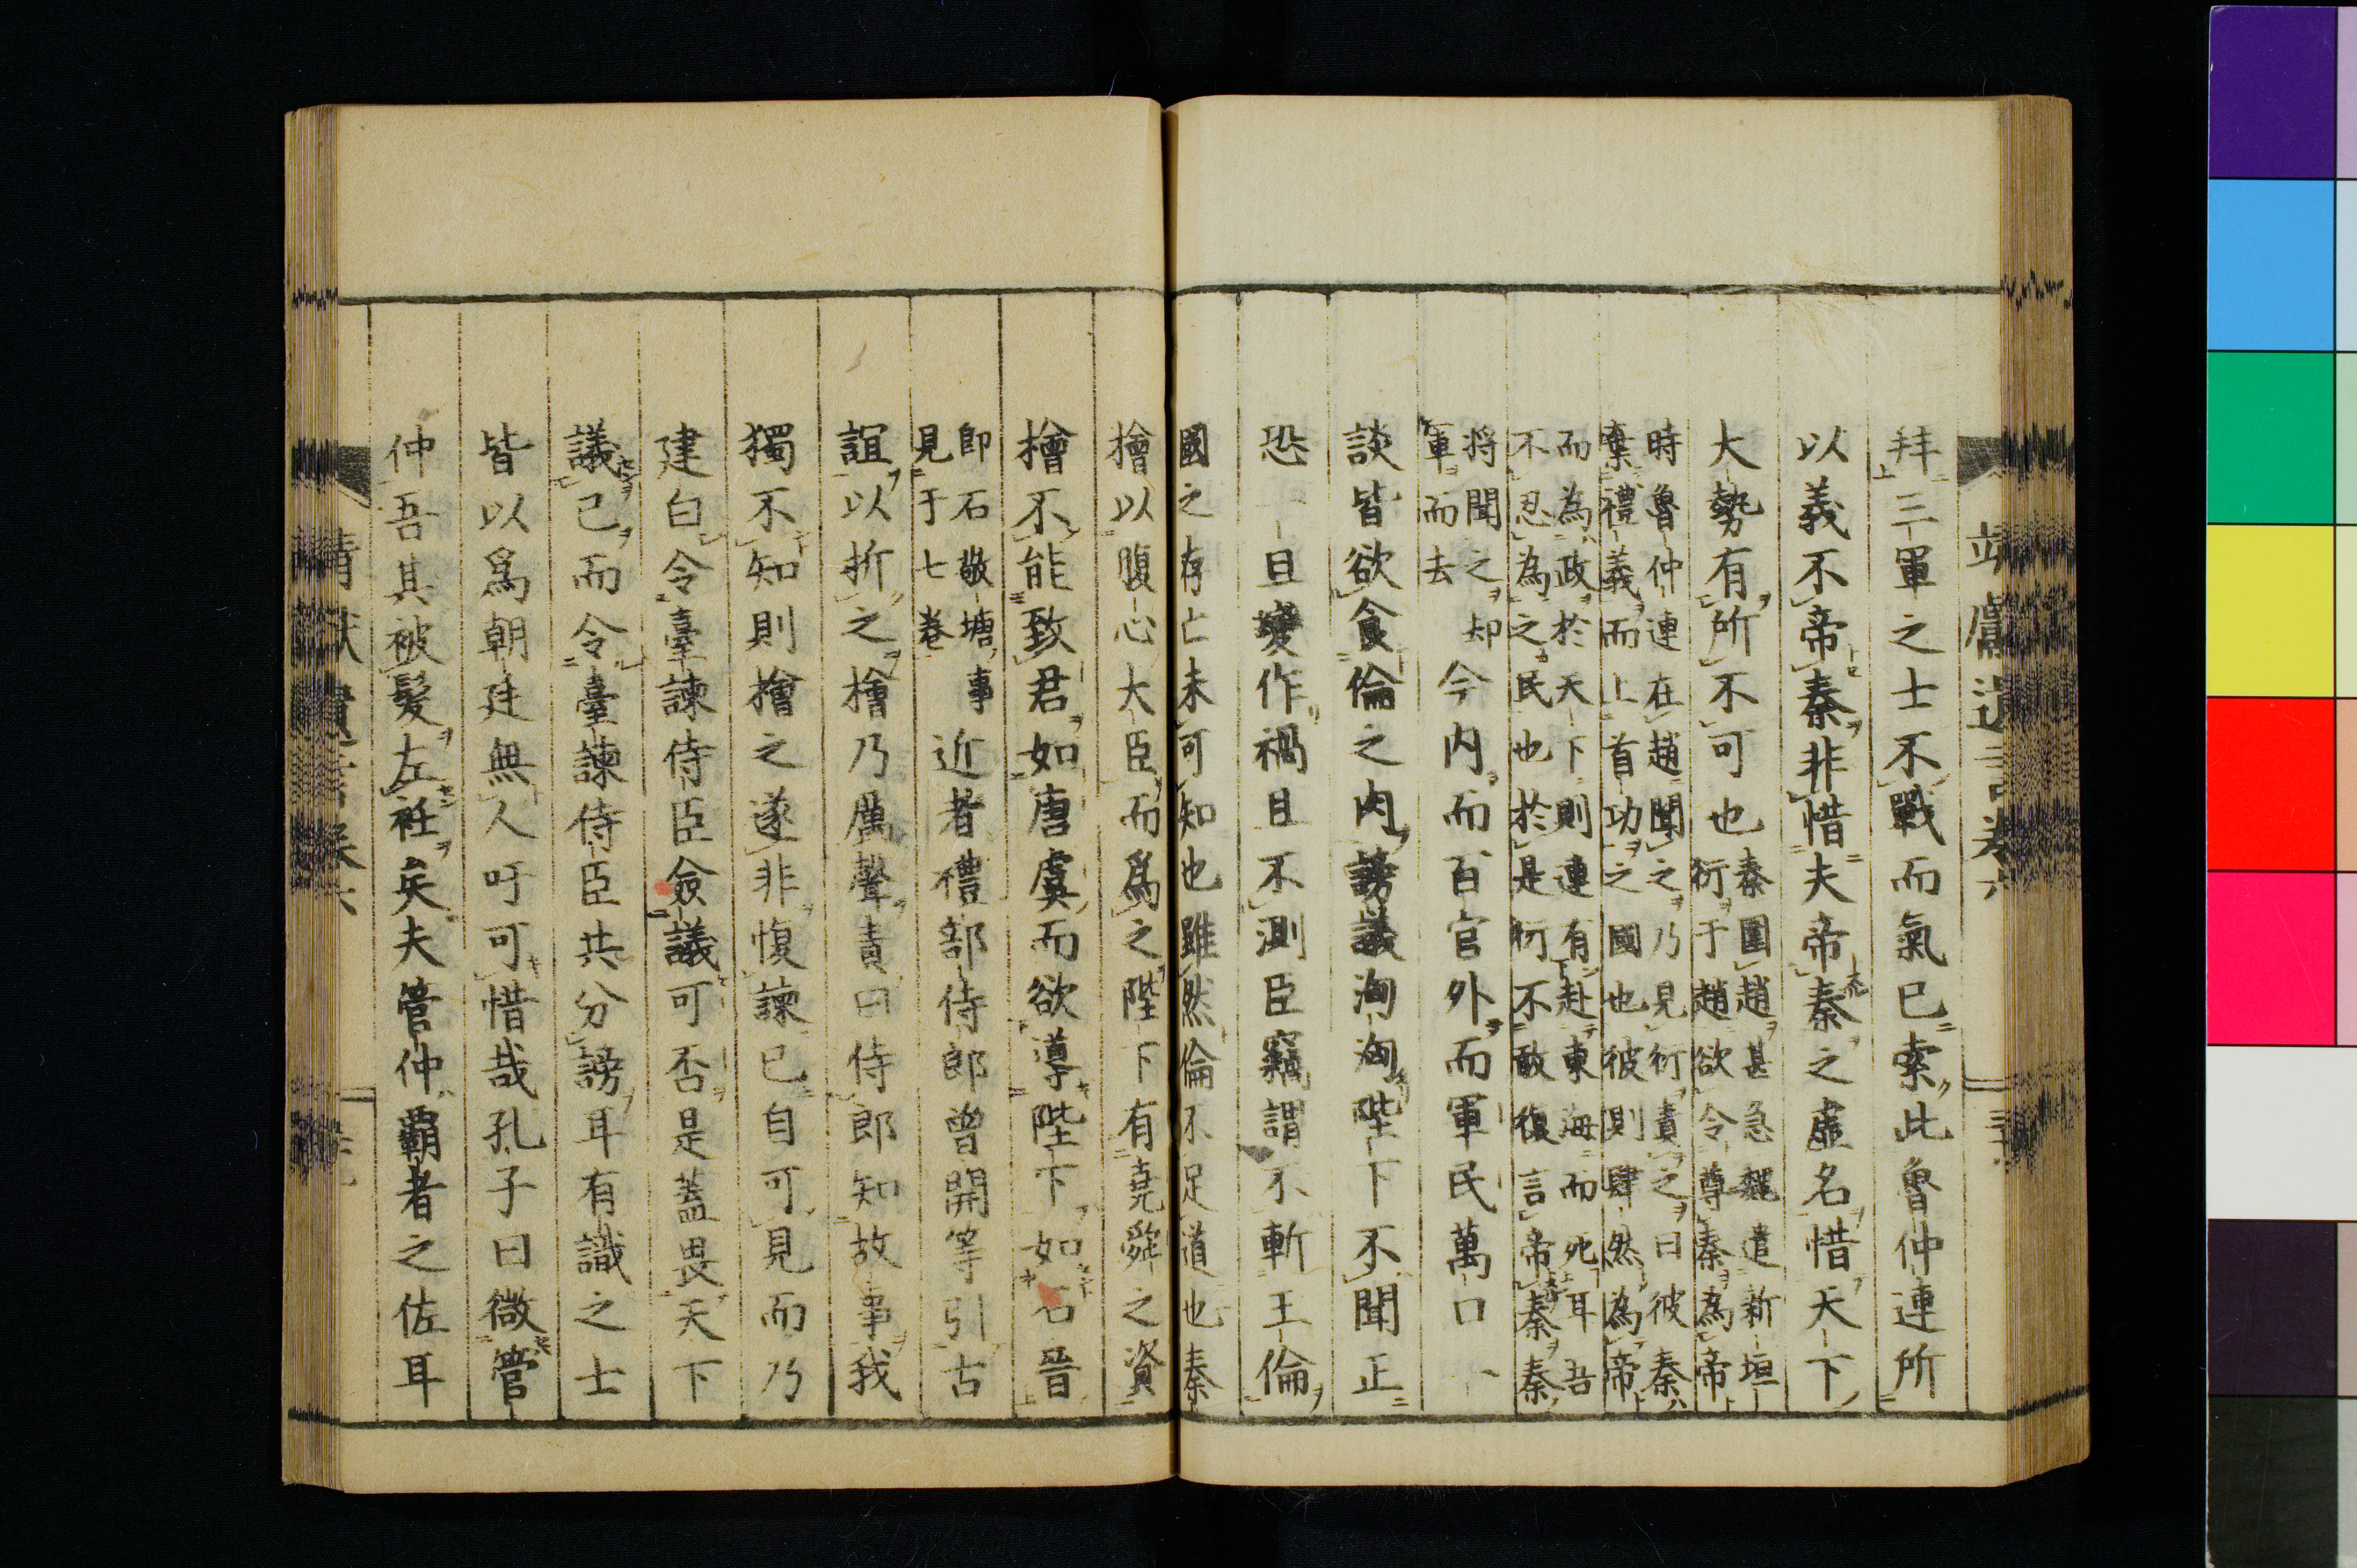 拜三軍之士不戰而氣已索此魯仲連所
以義不帝秦非惜夫帝秦之虛名惜天下
大勢有所不可也
秦圍趙甚急魏遣新垣
衍于趙欲令尊秦為帝
時魯仲連在趙聞之乃見衍責之曰彼秦
棄禮義而上首功之國也彼則肆然為帝
而為政於天下則連有赴東海而死耳吾
不忍為之民也於是衍不敢復言帝秦秦
將聞之却
軍而去
今内而百官外而軍民萬口一
談皆欲食倫之肉謗議洶洶陛下不聞正
恐一旦變作禍且不測臣竊謂不斬王倫
國之存亡未可知也雖然倫不足道也秦
檜以腹心大臣而爲之陛下有堯舜之資
檜不能致君如唐虞而欲導陛下如石晉
即石敬塘事
見于七卷
近者禮部侍郎曾開等引古
誼以折之檜乃厲聲責曰侍郎知故事我
獨不知則檜之遂非愎諫已自可見而乃
建白令臺諫侍臣僉議可否是蓋畏天下
議己而令臺諫侍臣共分謗耳有識之士
皆以爲朝廷無人吁可惜哉孔子曰微管
仲吾其被髮左衽矣夫管仲覇者之佐耳